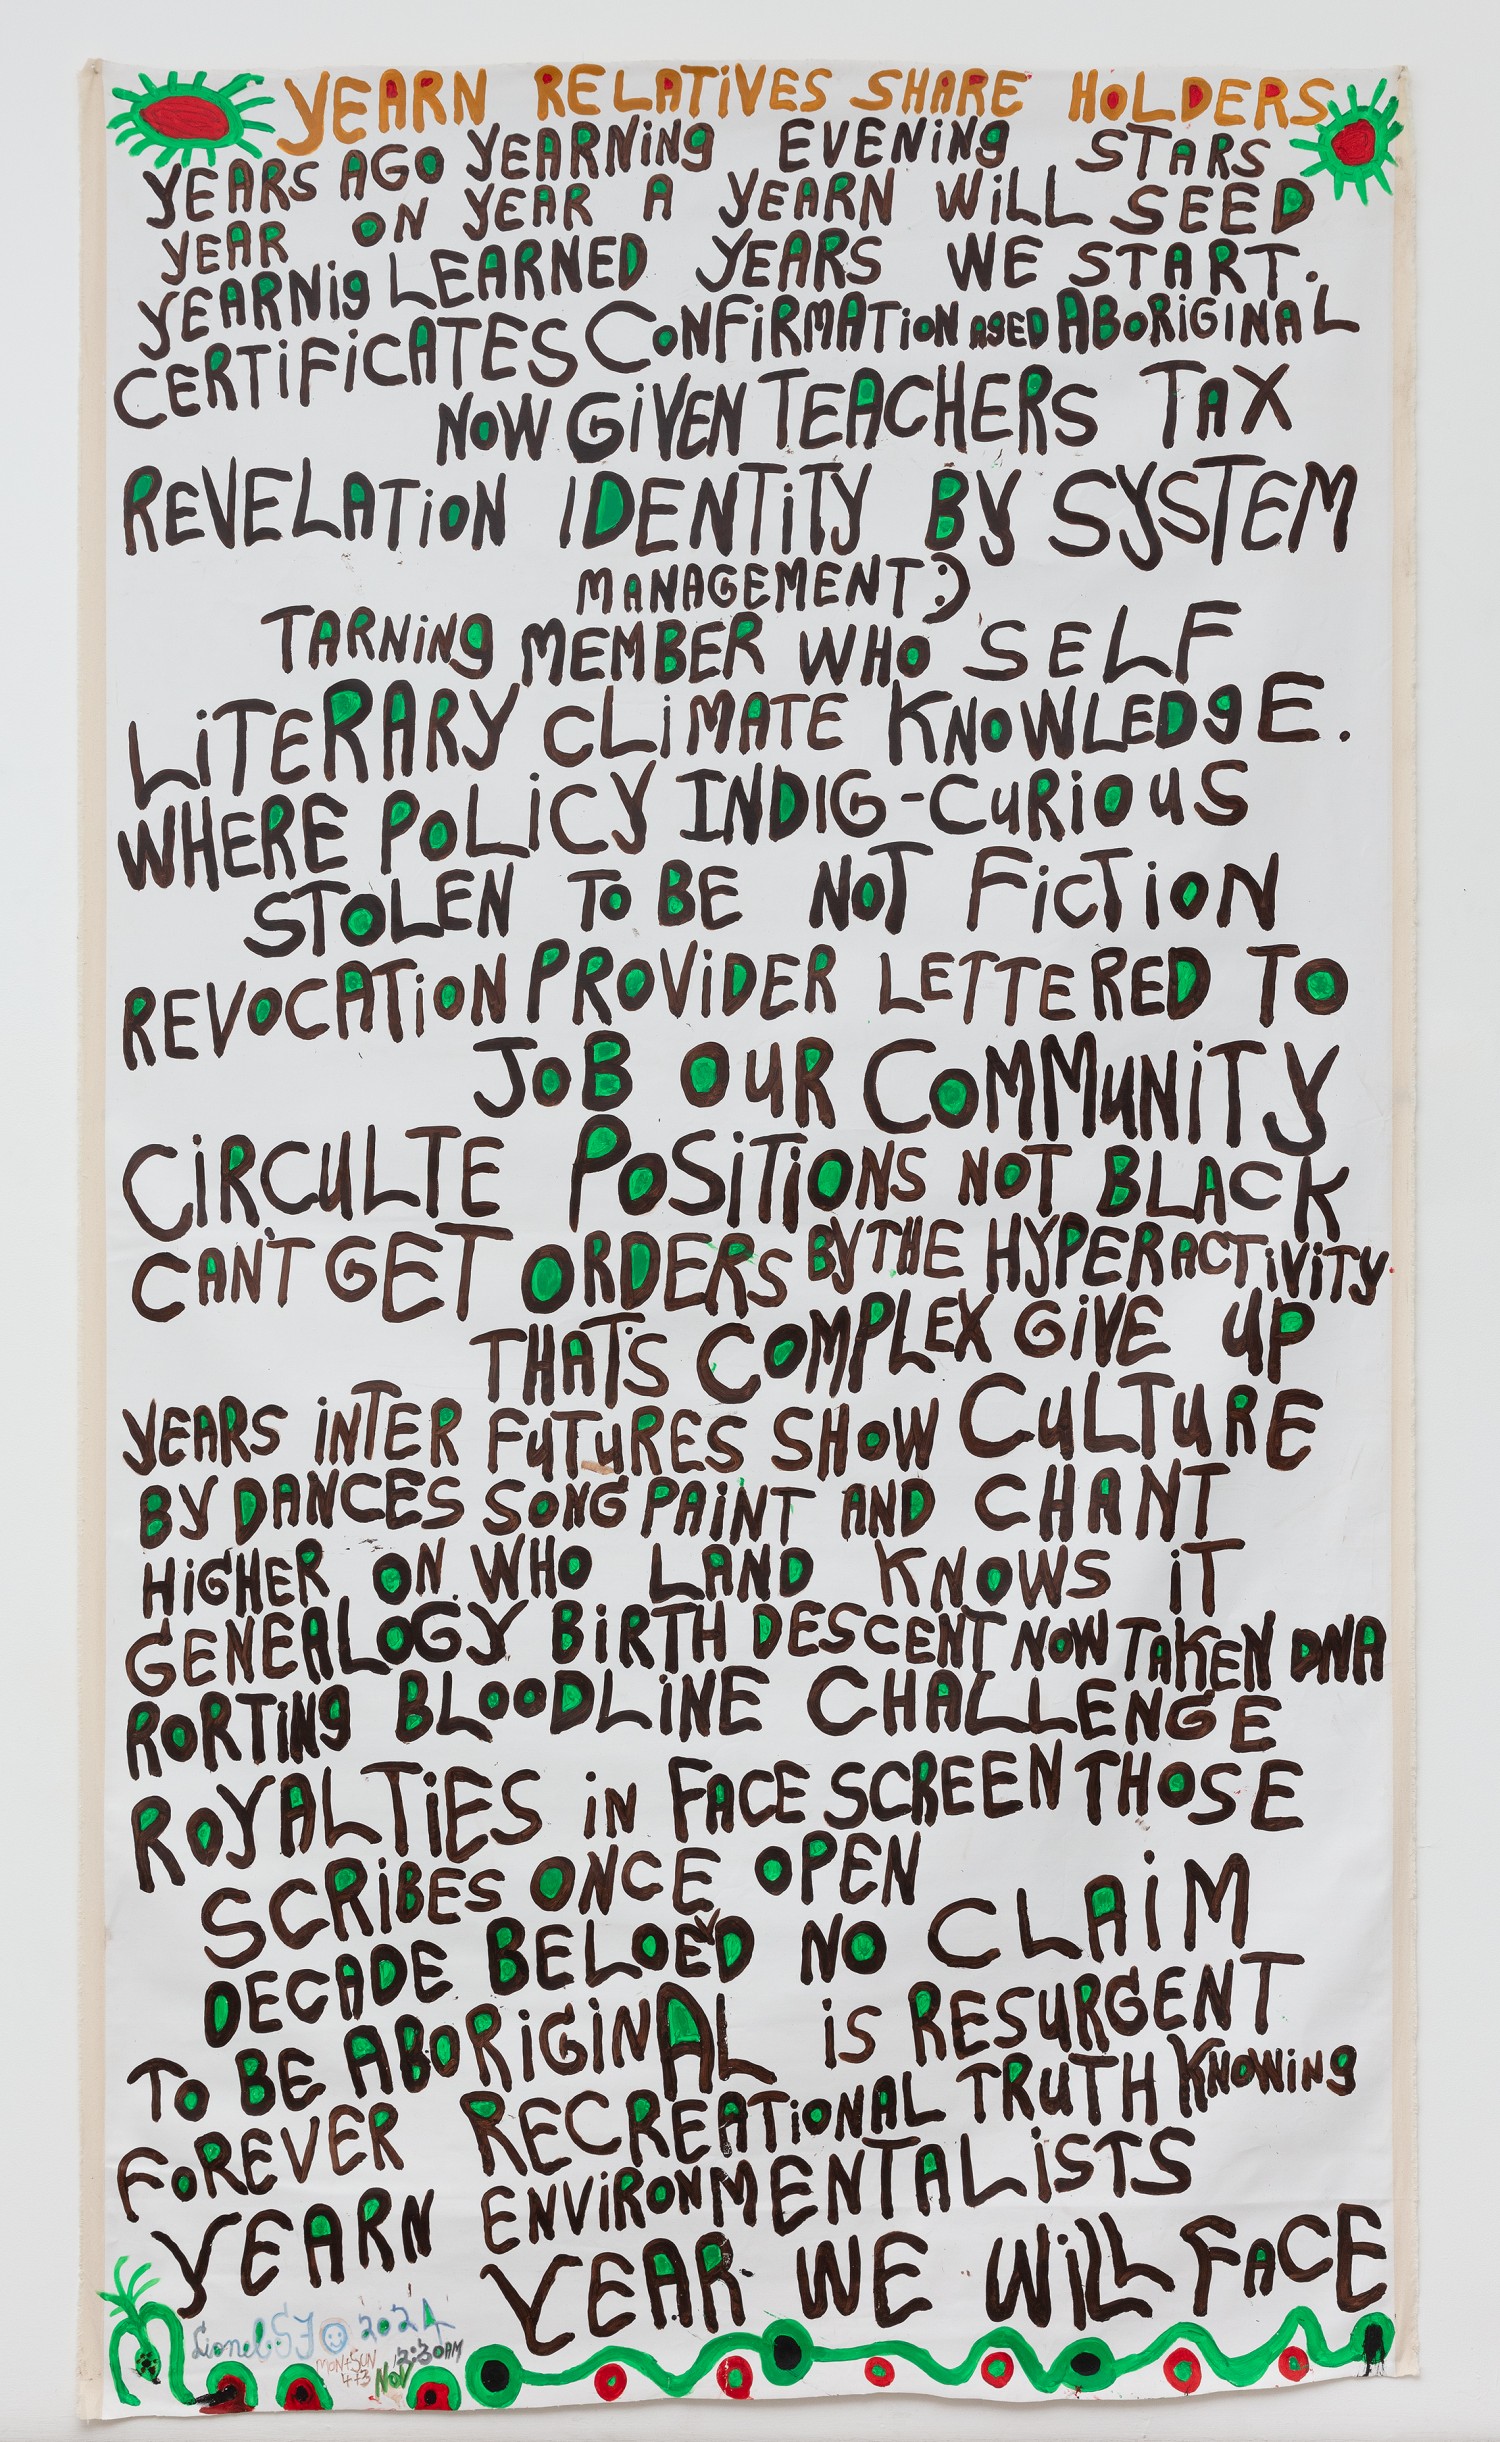 YEARN RELATIVES SHARE HOLDERS
YEARS AGO YEARNING EVENING STARS
YEAR ON YEAR A YEARN WILL SEED
YEARNIG LEARNED YEARS WE START.
CERTIFICATES CONFIRMATION AGED ABORIGINAL
NOW GIVEN TEACHERS TAX
REVELATION IDENTITY BY SYSTEM
MANAGEMENT :)
TARNING MEMBER WHO SELF
LITERARY CLIMATE KNOWLEDGE.
WHERE POLICY INDIG-CURIOUS
STOLEN TO BE NOT FICTION
REVOCATION PROVIDER LETTERED TO
JOB OUR COMMUNITY
CIRCULTE POSITIONS NOT BLACK
CAN'T GET ORDERS BY THE HYPERACTIVITY
THAT'S COMPLEX GIVE UP
YEARS INTER FUTURES SHOW CULTURE
BY DANCES SONG PAINT AND CHANT
HIGHER ON WHO LAND KNOWS IT
GENEALOGY BIRTH DESCENT NOW TAKEN DNA
RORTING BLOODLINE CHALLENGE
ROYALTIES IN FACE SCREEN THOSE
SCRIBES ONCE OPEN
DECADE BELOVED NO CLAIM
TO BE ABORIGINAL IS RESURGENT
FOREVER RECREATIONAL TRUTH KNOWING
YEARN ENVIRONMENTALISTS
YEAR WE WILL FACE
Lionel 2024
MON+SUN 4+3 NOV :30AM